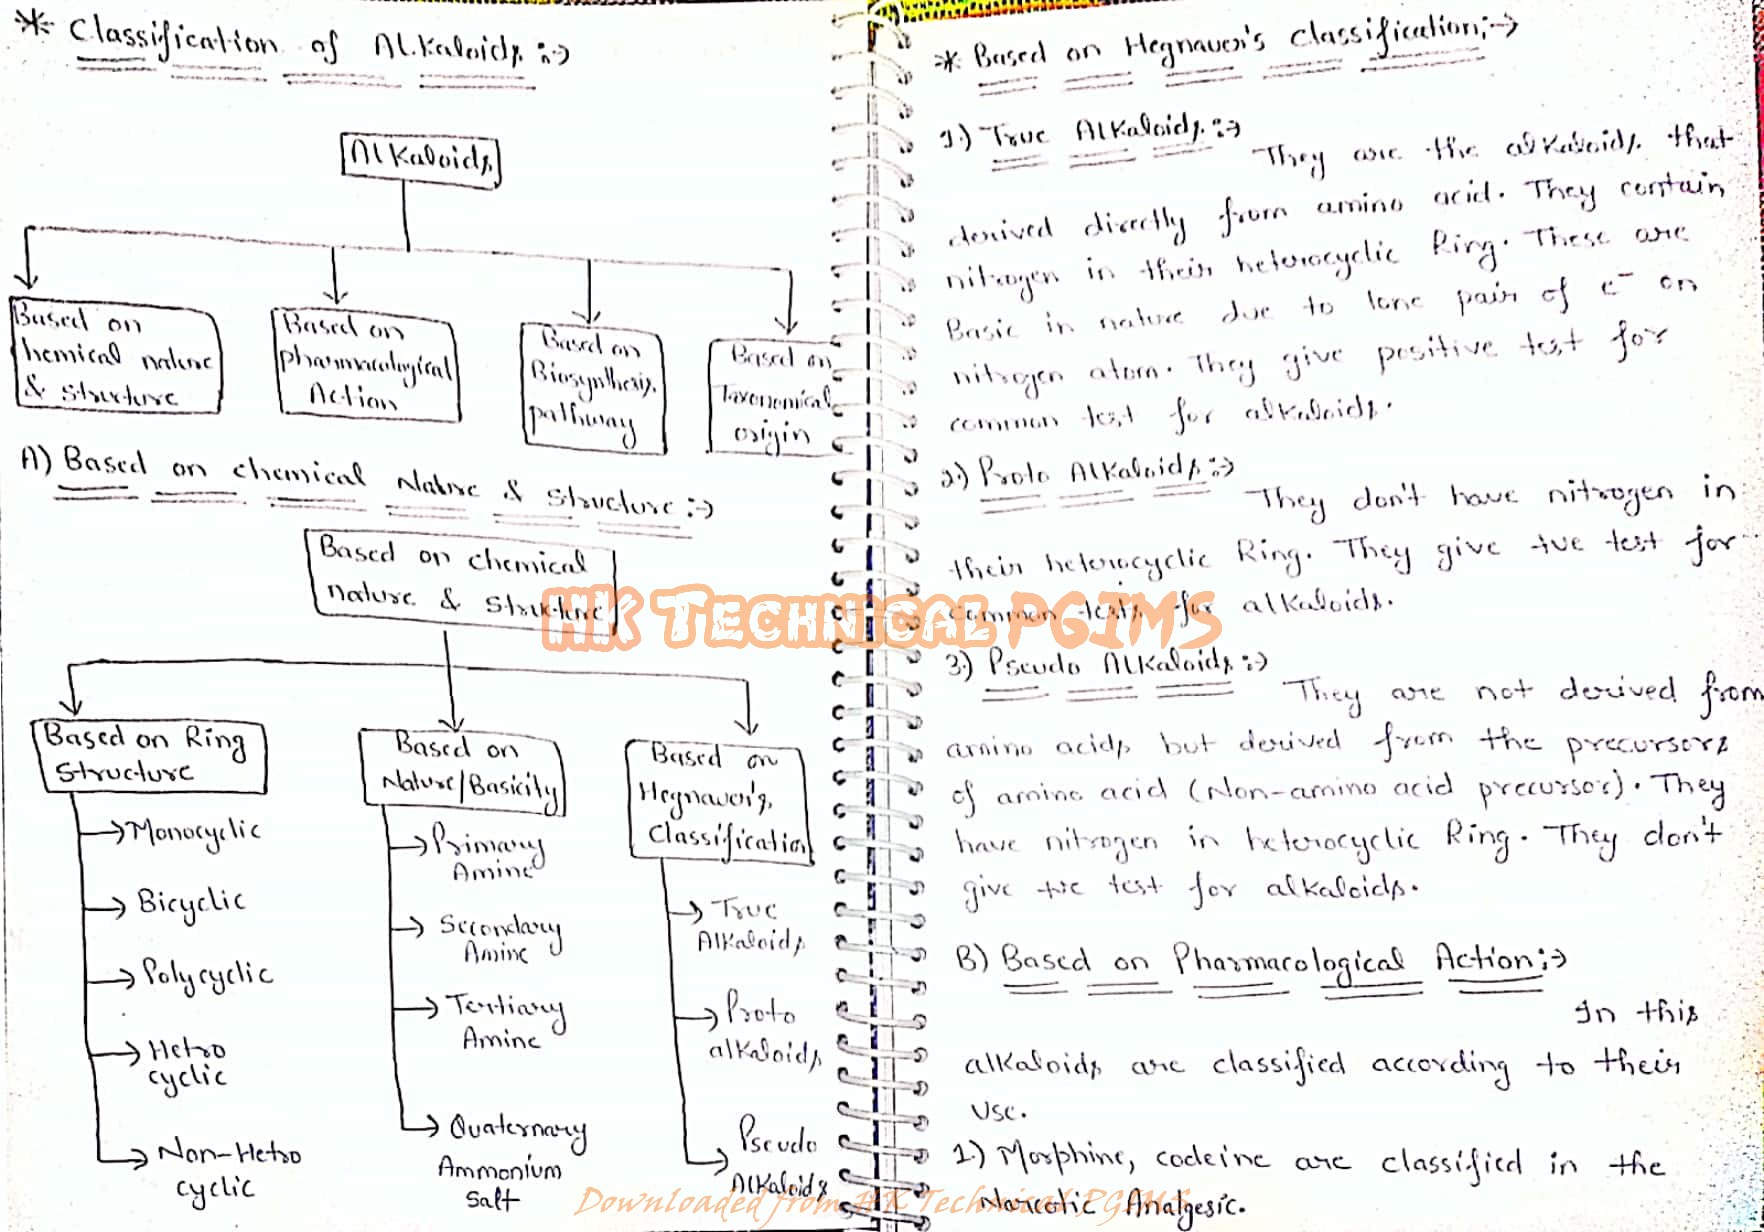 * Classification of Alkaloids :->
Alkaloids
Based on
hemical nature
& structure
Based on
pharmacological
Action
Based on
Biosynthesis
pathway
Based on
Taxonomical
origin
A) Based on chemical Nature & structure :->
Based on chemical
nature & structure
Based on Ring
structure
Monocyclic
Bicyclic
Polycyclic
Hetro
cyclic
Non-Hetro
cyclic
Based on
Nature/Basicity
Primary
Amine
Secondary
Amine
Tertiary
Amine
Quaternary
Ammonium
salt
Based on
Hegnauer's
classification
True
Alkaloids
Proto
alkaloids
Pseudo
Alkaloids
* Based on Hegnauer's classification :->
1.) True Alkaloids :->
They are the alkaloids that
derived directly from amino acid. They contain
nitrogen in their heterocyclic Ring. These are
Basic in nature due to lone pair of e⁻ on
nitrogen atom. They give positive test for
common test for alkaloids.
2.) Proto Alkaloids :->
They don't have nitrogen in
their heterocyclic Ring. They give +ve test for
common tests for alkaloids.
3.) Pseudo Alkaloids :->
They are not derived from
amino acids but derived from the precursors
of amino acid (Non-amino acid precursor). They
have nitrogen in heterocyclic Ring. They don't
give +ve test for alkaloids.
B) Based on Pharmacological Action :->
In this
alkaloids are classified according to their
use.
1.) Morphine, codeine are classified in the
Narcotic Analgesic.
HK Technical PGIMS
Downloaded from HK Technical PGIMS